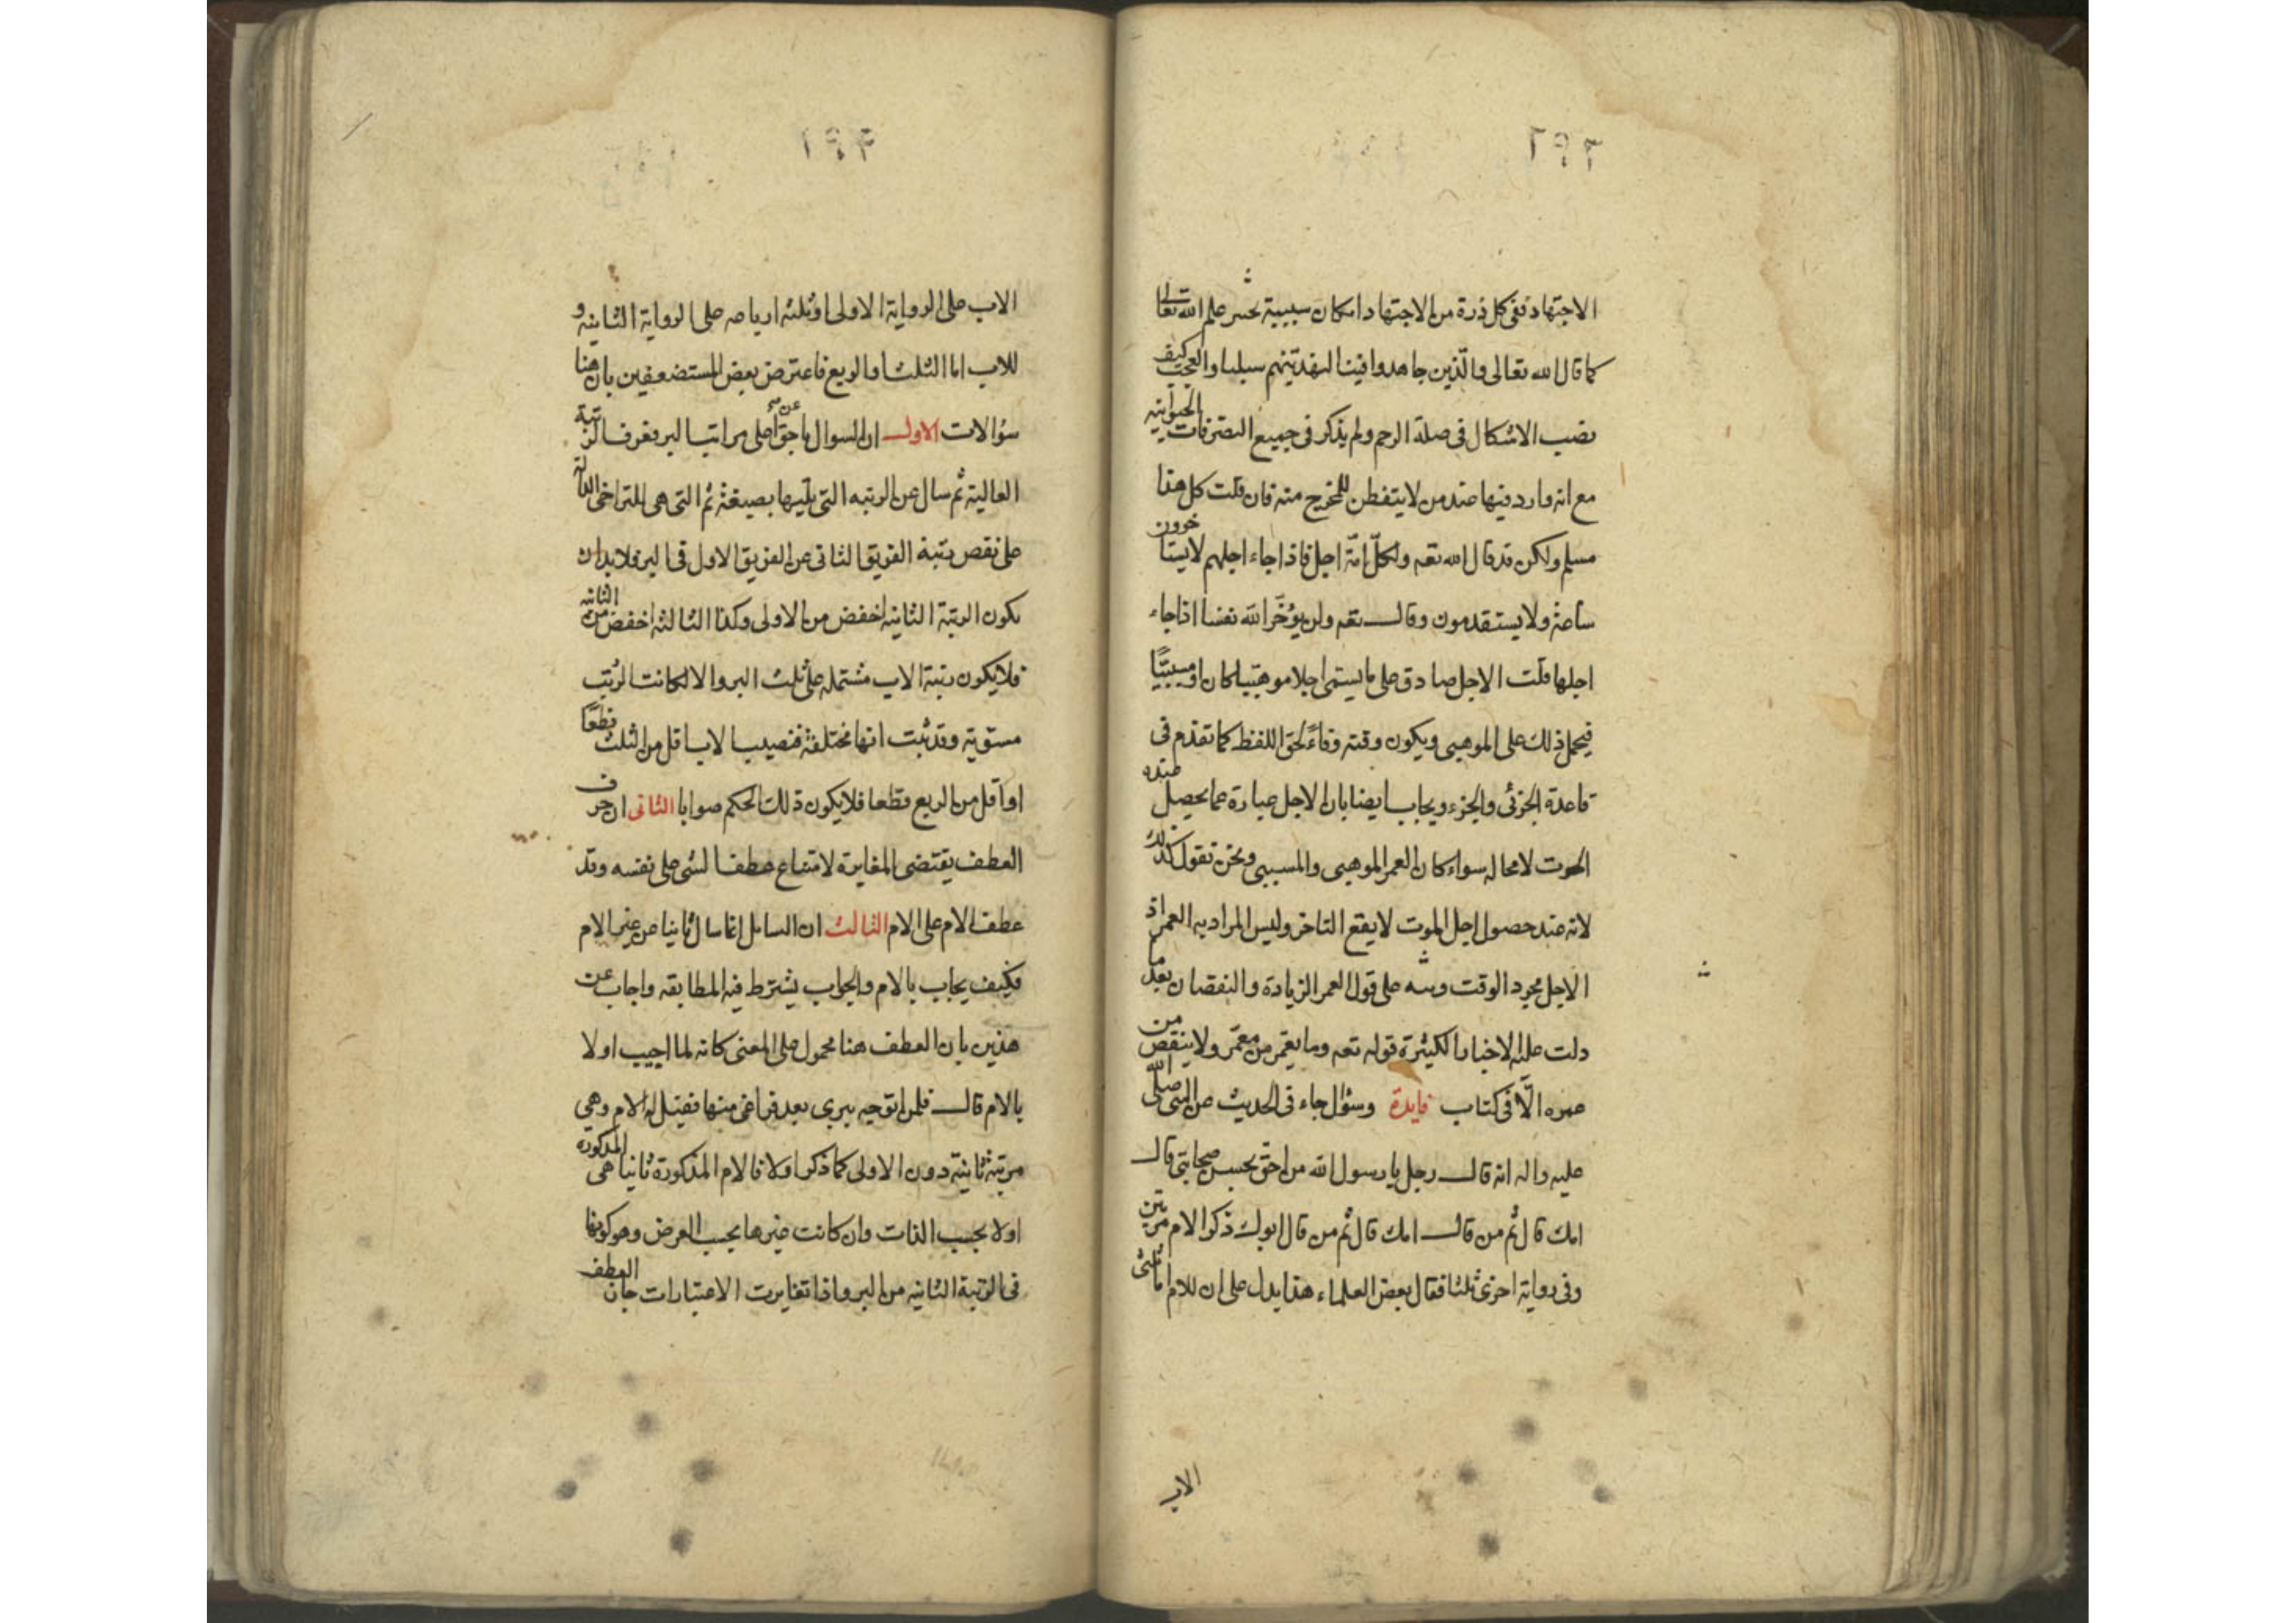 ٢٩٣
الاجتهاد ففى كل ذرة من الاجتهاد امكان سببية بحسب علم الله تعالى
كما قال الله تعالى والّذين جاهدوا فينا لنهدينهم سبلنا والعجب كيف
نصب الاشكال فى صلة الرحم ولم يذكر فى جميع التصرفات الحيوانيه
مع انه وارد فيها عند من لا يتفطن للمخرج منه فان قلت كل هذا
مسلم ولكن قد قال الله تعه ولكلّ امّة اجل فاذا جاء اجلهم لا يستاخرون
ساعة ولا يستقدمون وقال تعه ولن يؤخّر الله نفسا اذا جاء
اجلها قلت الاجل صادق على ما يسمى اجلا موهبيا كان او مسببيّا
فيحمل ذلك على الموهبى ويكون وقته وفاءً لحق اللفظ كما تقدم فى
قاعدة الجزئى والجزء ويجاب ايضا بان الاجل عبارة عما يحصل عنده
الموت لا محاله سواء كان العمر الموهبى والمسببى ونحن نقول كذلك
لانه عند حصول اجل الموت لا يقع التاخر وليس المراد به العمر اذ
الاجل مجرد الوقت على قول العمر الزيادة والنقصان بعد ما
دلت عليه الاخبار الكثيرة قوله تعه وما يعمّر من معمّر ولا ينقص من
عمره الّا فى كتاب فايدة وسؤال جاء فى الحديث عن النبى صلى الله
عليه واله انه قال رجل يا رسول الله من احق بحسن صحابتى قال
امك قال ثم من قال امك قال ثم من قال ابوك ذكر الام مرتين
وفى رواية اخرى ثلثا فقال بعض العلماء هذا يدل على ان للام اما ثلثى
الاب
٢٩٤
الاب على الرواية الاولى او ثلثه ارباعه على الرواية الثانيه و
للاب اما الثلث او الربع فاعترض بعض المستضعفين بان هنا
سؤالات الاول ان السوال باحق عن اعلى مراتب البر فعرف الرتبة
العالية ثم سال عن الرتبه التى تليها بصيغة ثم التى هى للتراخى الدالة
على نقص رتبة الفريق الثانى عن الفريق الاول فى البر فلا بد ان
يكون الرتبة الثانيه اخفض من الاولى وكذا الثالثه اخفض من الثانيه
فلا يكون رتبة الاب مشتمله على ثلث البر والا لكانت الرتب
مستوية وقد ثبت انها مختلفة فنصيب الاب اقل من الثلث قطعًا
او اقل من الربع قطعا فلا يكون ذلك الحكم صوابا الثانى ان حرف
العطف يقتضى المغايرة لامتناع عطف الشى على نفسه وقد
عطف الام على الام الثالث ان السايل انما سال ثانيا عن غير الام
فكيف يجاب بالام والجواب يشترط فيه المطابقه واجاب عن
هذين بان العطف هنا محمول على المعنى كانه لما اجيب اولا
بالام قال فلمن اتوجه ببرى بعد فراغى منها فقيل له الام وهى
مرتبة ثانية دون الاولى كما ذكر اولا فالام المذكورة ثانيا هى المذكوره
اولا بحسب الذات وان كانت غيرها بحسب العرض وهو كونها
فى الرتبة الثانيه من البر واذا تغايرت الاعتبارات جاز العطف